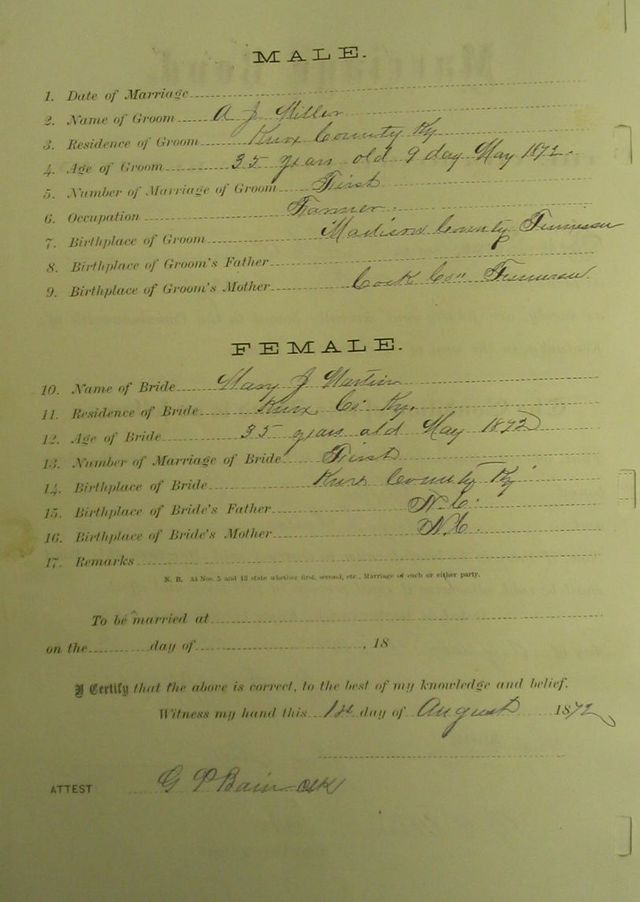 MALE.
1. Date of Marriage
2. Name of Groom A J Miller
3. Residence of Groom Knox County Ky
4. Age of Groom 35 years old 9 day May 1872.
5. Number of Marriage of Groom First
6. Occupation Farmer.
7. Birthplace of Groom Madison County Tennessee
8. Birthplace of Groom's Father
9. Birthplace of Groom's Mother Cock Co" Tennessee
FEMALE.
10. Name of Bride Mary J Martin
11. Residence of Bride Knox Co. Ky.
12. Age of Bride 35 years old May 1872
13. Number of Marriage of Bride First
14. Birthplace of Bride Knox County Ky
15. Birthplace of Bride's Father N.C.
16. Birthplace of Bride's Mother N.C.
17. Remarks
N. B. At Nos. 5 and 13 state whether first, second, etc., Marriage of each or either party.
To be married at
on the day of , 18
I Certify that the above is correct, to the best of my knowledge and belief.
Witness my hand this 1st day of August 1872
ATTEST G P Bain